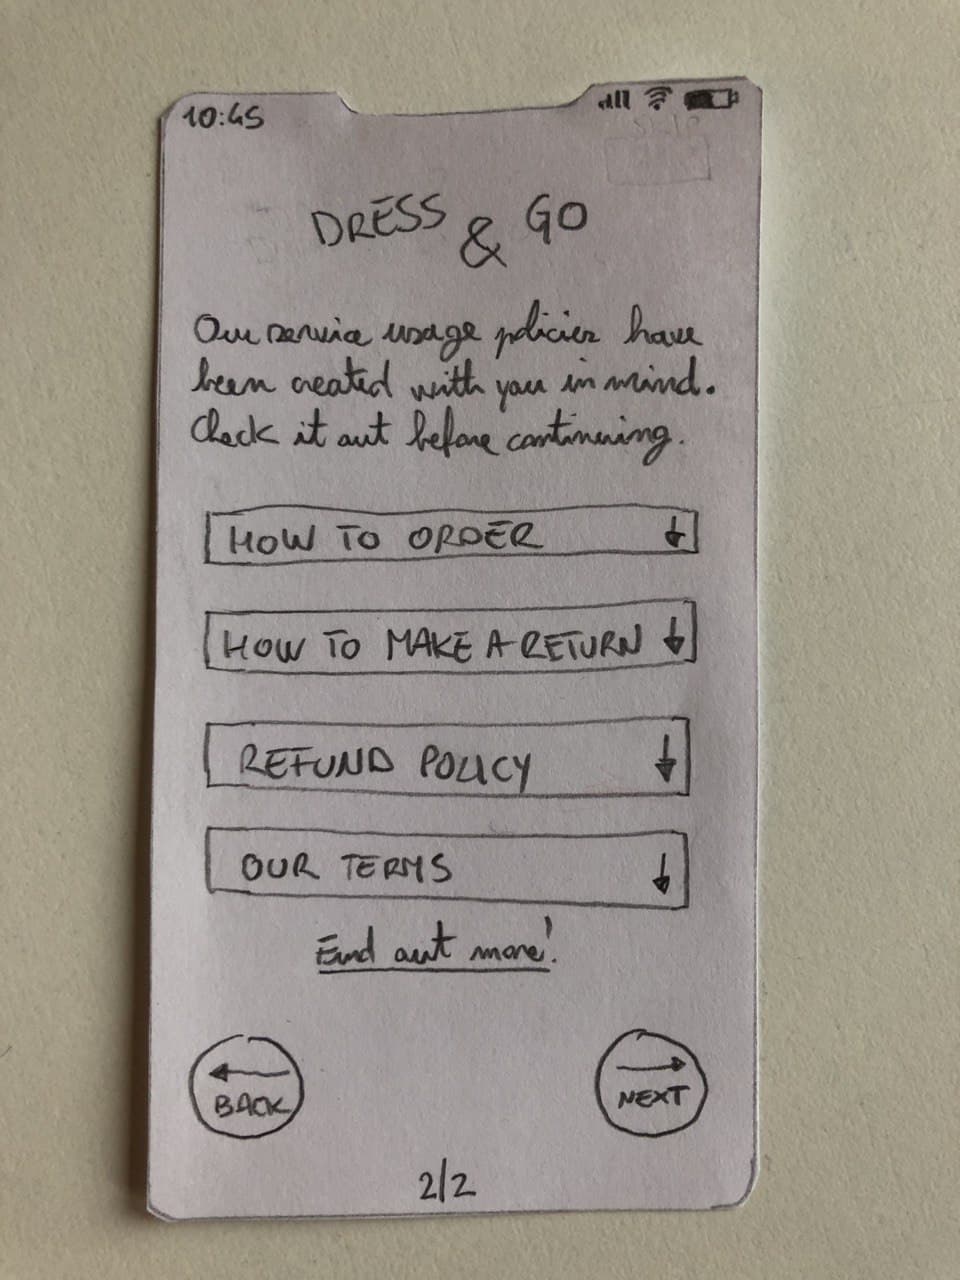 10:45
DRESS & GO
Our service usage policies have
been created with you in mind.
Check it out before continuing.
HOW TO ORDER
HOW TO MAKE A RETURN
REFUND POLICY
OUR TERMS
Find out more!
BACK
NEXT
2/2